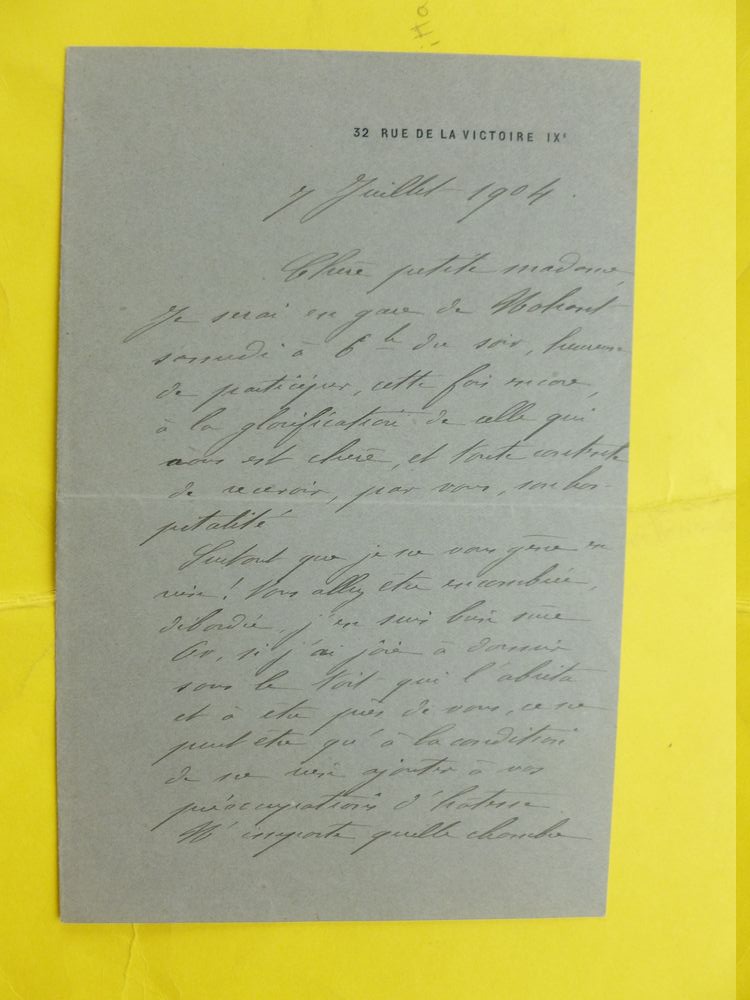 32 RUE DE LA VICTOIRE IXᵉ
7 Juillet 1904.
Chère petite madame
Je serai en gare de Nohant
samedi à 6h du soir, heureuse
de participer, cette fois encore,
à la glorification de celle qui
nous est chère, et toute contente
de recevoir, par vous, son hos-
pitalité
Surtout que je ne vous gêne en
rien! Vous allez être encombrée,
débordée, j'en suis bien sûre
Or, si j'ai joie à dormir
sous le toit qui l'abrita
et à être près de vous, ce ne
peut être qu'à la condition
de ne rien ajouter à vos
préoccupations d'hôtesse.
N'importe quelle chambre